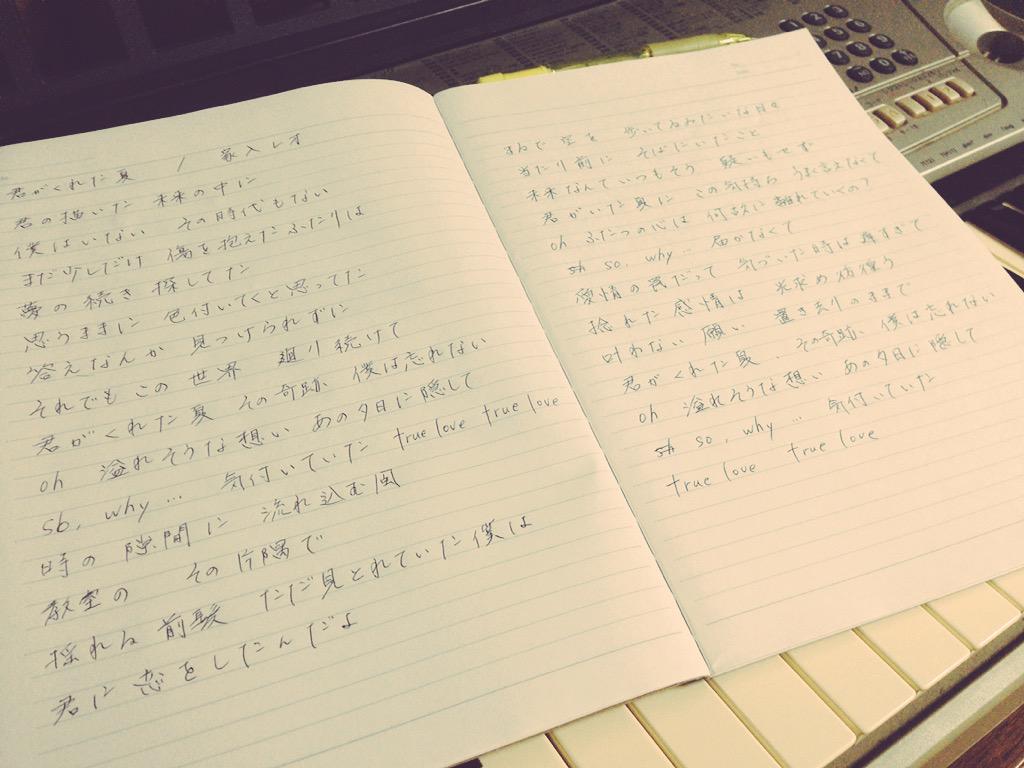 君がくれた夏 / 家入レオ
君の描いた 未来の中に
僕はいない その時代もない
まだ少しだけ 傷を抱えたふたりは
夢の続き 探してた
思うままに 色付いてくと思ってた
答えなんか 見つけられずに
それでも この世界 廻り続けて
君がくれた夏 その奇跡 僕は忘れない
oh 溢れそうな想い あの夕日に隠して
so, why… 気付いていた true love true love
時の隙間に 流れ込む風
教室の その片隅で
揺れる前髪 ただ見とれていた僕は
君に恋をしたんだよ
まるで空を 歩いてるみたいな日々
当たり前に そばにいたこと
未来なんていつもそう 疑いもせず
君がいた夏に この気持ち うまく言えなくて
oh ふたつの心は 何故に離れていくの?
so, why… 届かなくて
愛情の罠だって 気づいた時は遅すぎて
捻れた感情は 光求め彷徨う
叶わない願い 置き去りのままで
君がくれた夏 その奇跡 僕は忘れない
oh 溢れそうな想い あの夕日に隠して
so, why… 気付いていた
true love true love